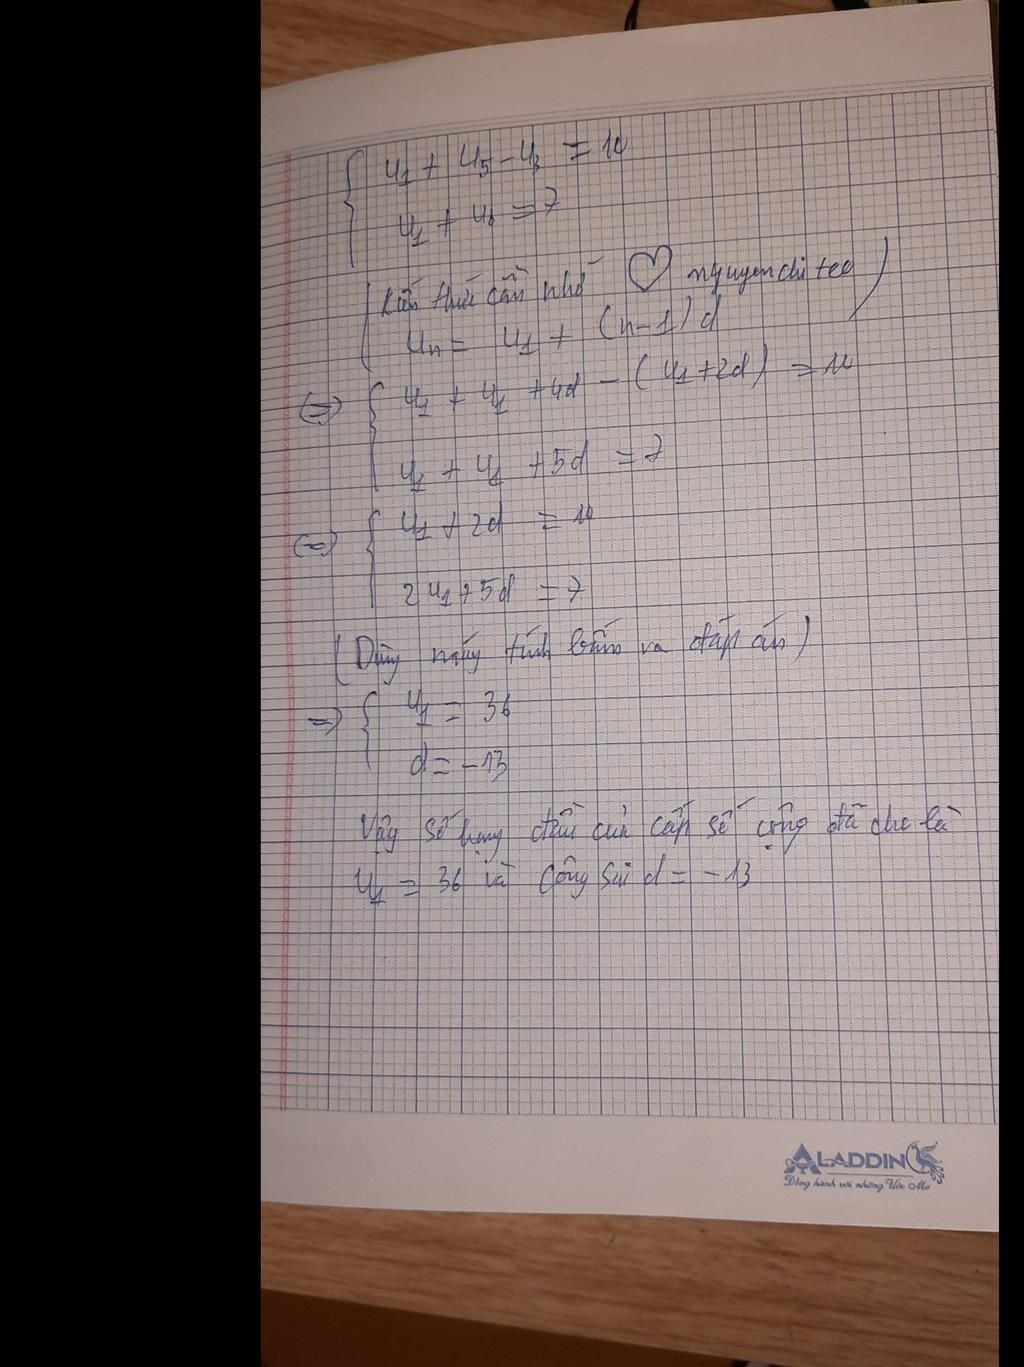 u₁ + u₅ - u₃ = 10
u₁ + u₆ = 7
(Kiến thức cần nhớ ♡ nguyenchiteo
uₙ = u₁ + (n-1)d)
(=) u₁ + u₁ + 4d - (u₁ + 2d) = 10
u₁ + u₁ + 5d = 7
(=) u₁ + 2d = 10
2u₁ + 5d = 7
(Dùng máy tính bấm ra đáp án)
=) u₁ = 36
d = -13
Vậy số hạng đầu của cấp số cộng đã cho là
u₁ = 36 và công sai d = -13
ALADDIN
Đồng hành với những Ước Mơ